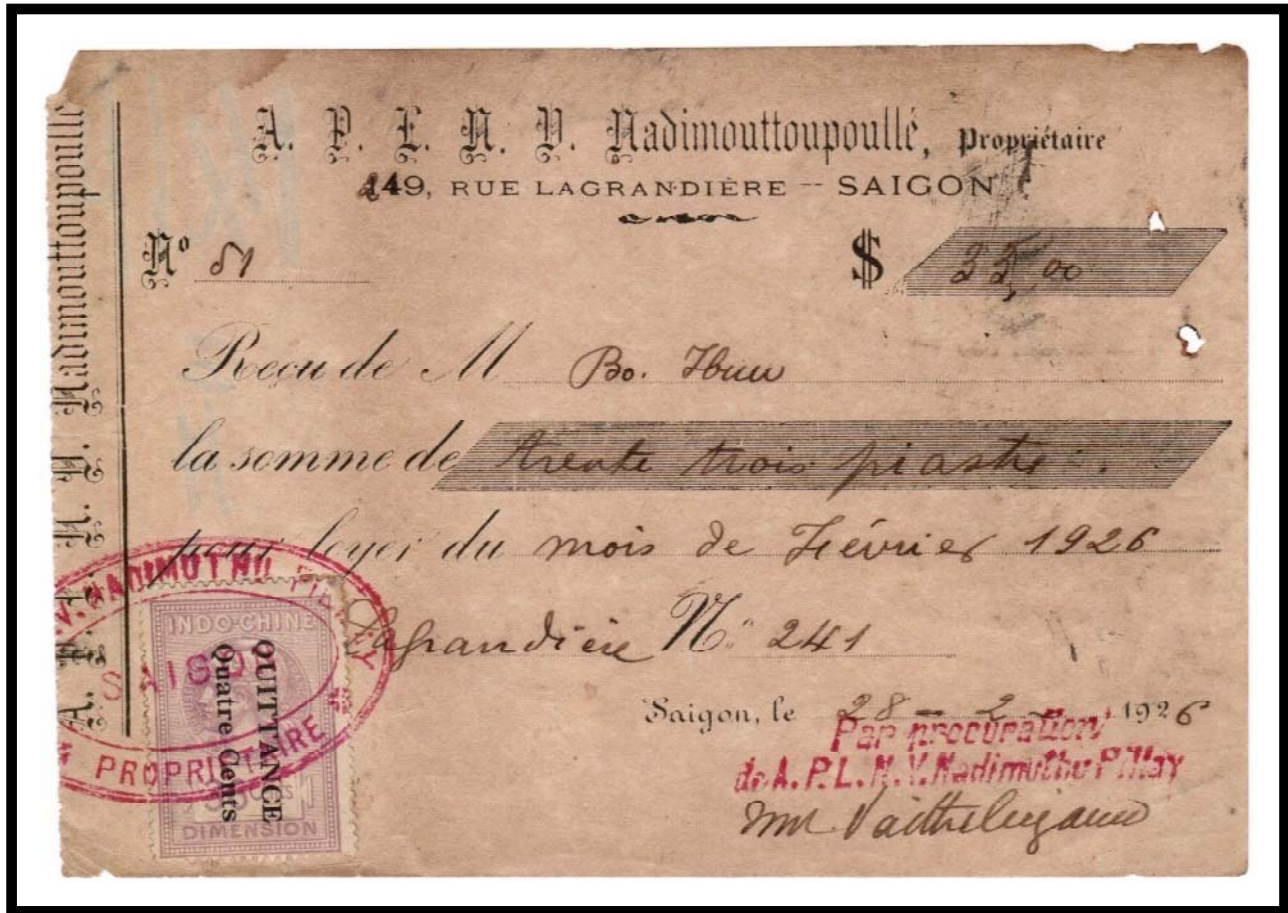 A. P. L. N. V. Nadimouttoupoullé
A. P. L. N. V. Nadimouttoupoullé, Propriétaire
149, RUE LAGRANDIÈRE -- SAIGON
Nº 51
$ 33,00
Reçu de M Bo.
la somme de trente trois piastre
pour loyer du mois de Février 1926
Lagrandière Nº 241
Saigon, le 28 - 2 - 1926
Par procuration
de A.P.L.N.V. Nadimuthu Pillay
.V. NADIMUTHU PILLAY
SAIGON
* PROPRIETAIRE *
INDO-CHINE
QUITTANCE
Quatre Cents
DIMENSION